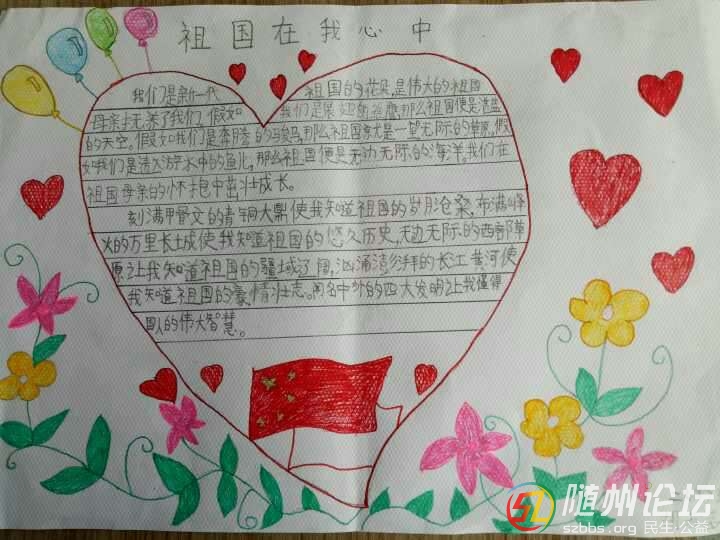 祖国在我心中
我们是新一代 祖国的花朵,是伟大的祖国
母亲抚养了我们,假如 我们是展翅的雄鹰,那么祖国便是湛蓝
的天空。假如我们是奔腾的骏马,那么祖国就是一望无际的草原,假
如我们是遨游水中的鱼儿,那么祖国便是无边无际的海洋。我们在
祖国母亲的怀抱中茁壮成长。
刻满甲骨文的青铜大鼎使我知道祖国的岁月沧桑,布满烽
火的万里长城使我知道祖国的悠久历史,无边无际的西部草
原让我知道祖国的疆域辽阔,汹涌澎拜的长江黄河使
我知道祖国的豪情壮志。闻名中外的四大发明让我懂得
国人的伟大智慧。
随州论坛
szbbs.org 民生·公益